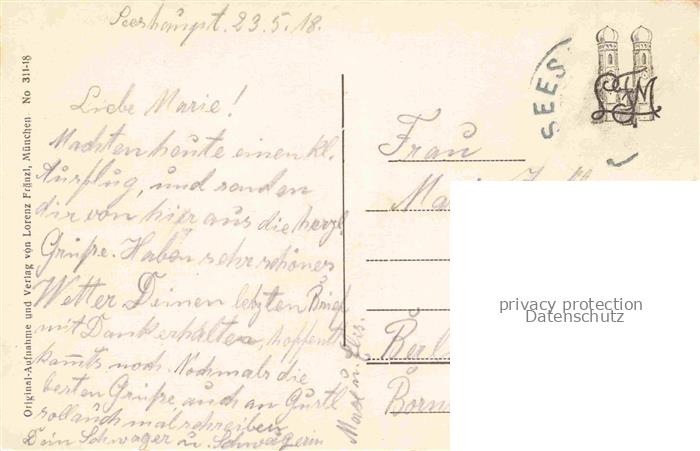 Seeshaupt. 23.5.18.
Liebe Marie!
Machten heute einen kl.
Ausflug, und senden
dir von hier aus die herzl.
Grüße. Haben sehr schönes
Wetter Deinen letzten Brief
mit Dank erhalten, hoffentl.
kommts noch. Nochmals die
besten Grüße auch an Gustl
soll auch mal schreiben
Dein Schwager u. Schwägerin
Max u.
Original-Aufnahme und Verlag von Lorenz Fränzl, München No 311-18
SEES
LFM
Frau
Ma
Berl
Born
privacy protection
Datenschutz